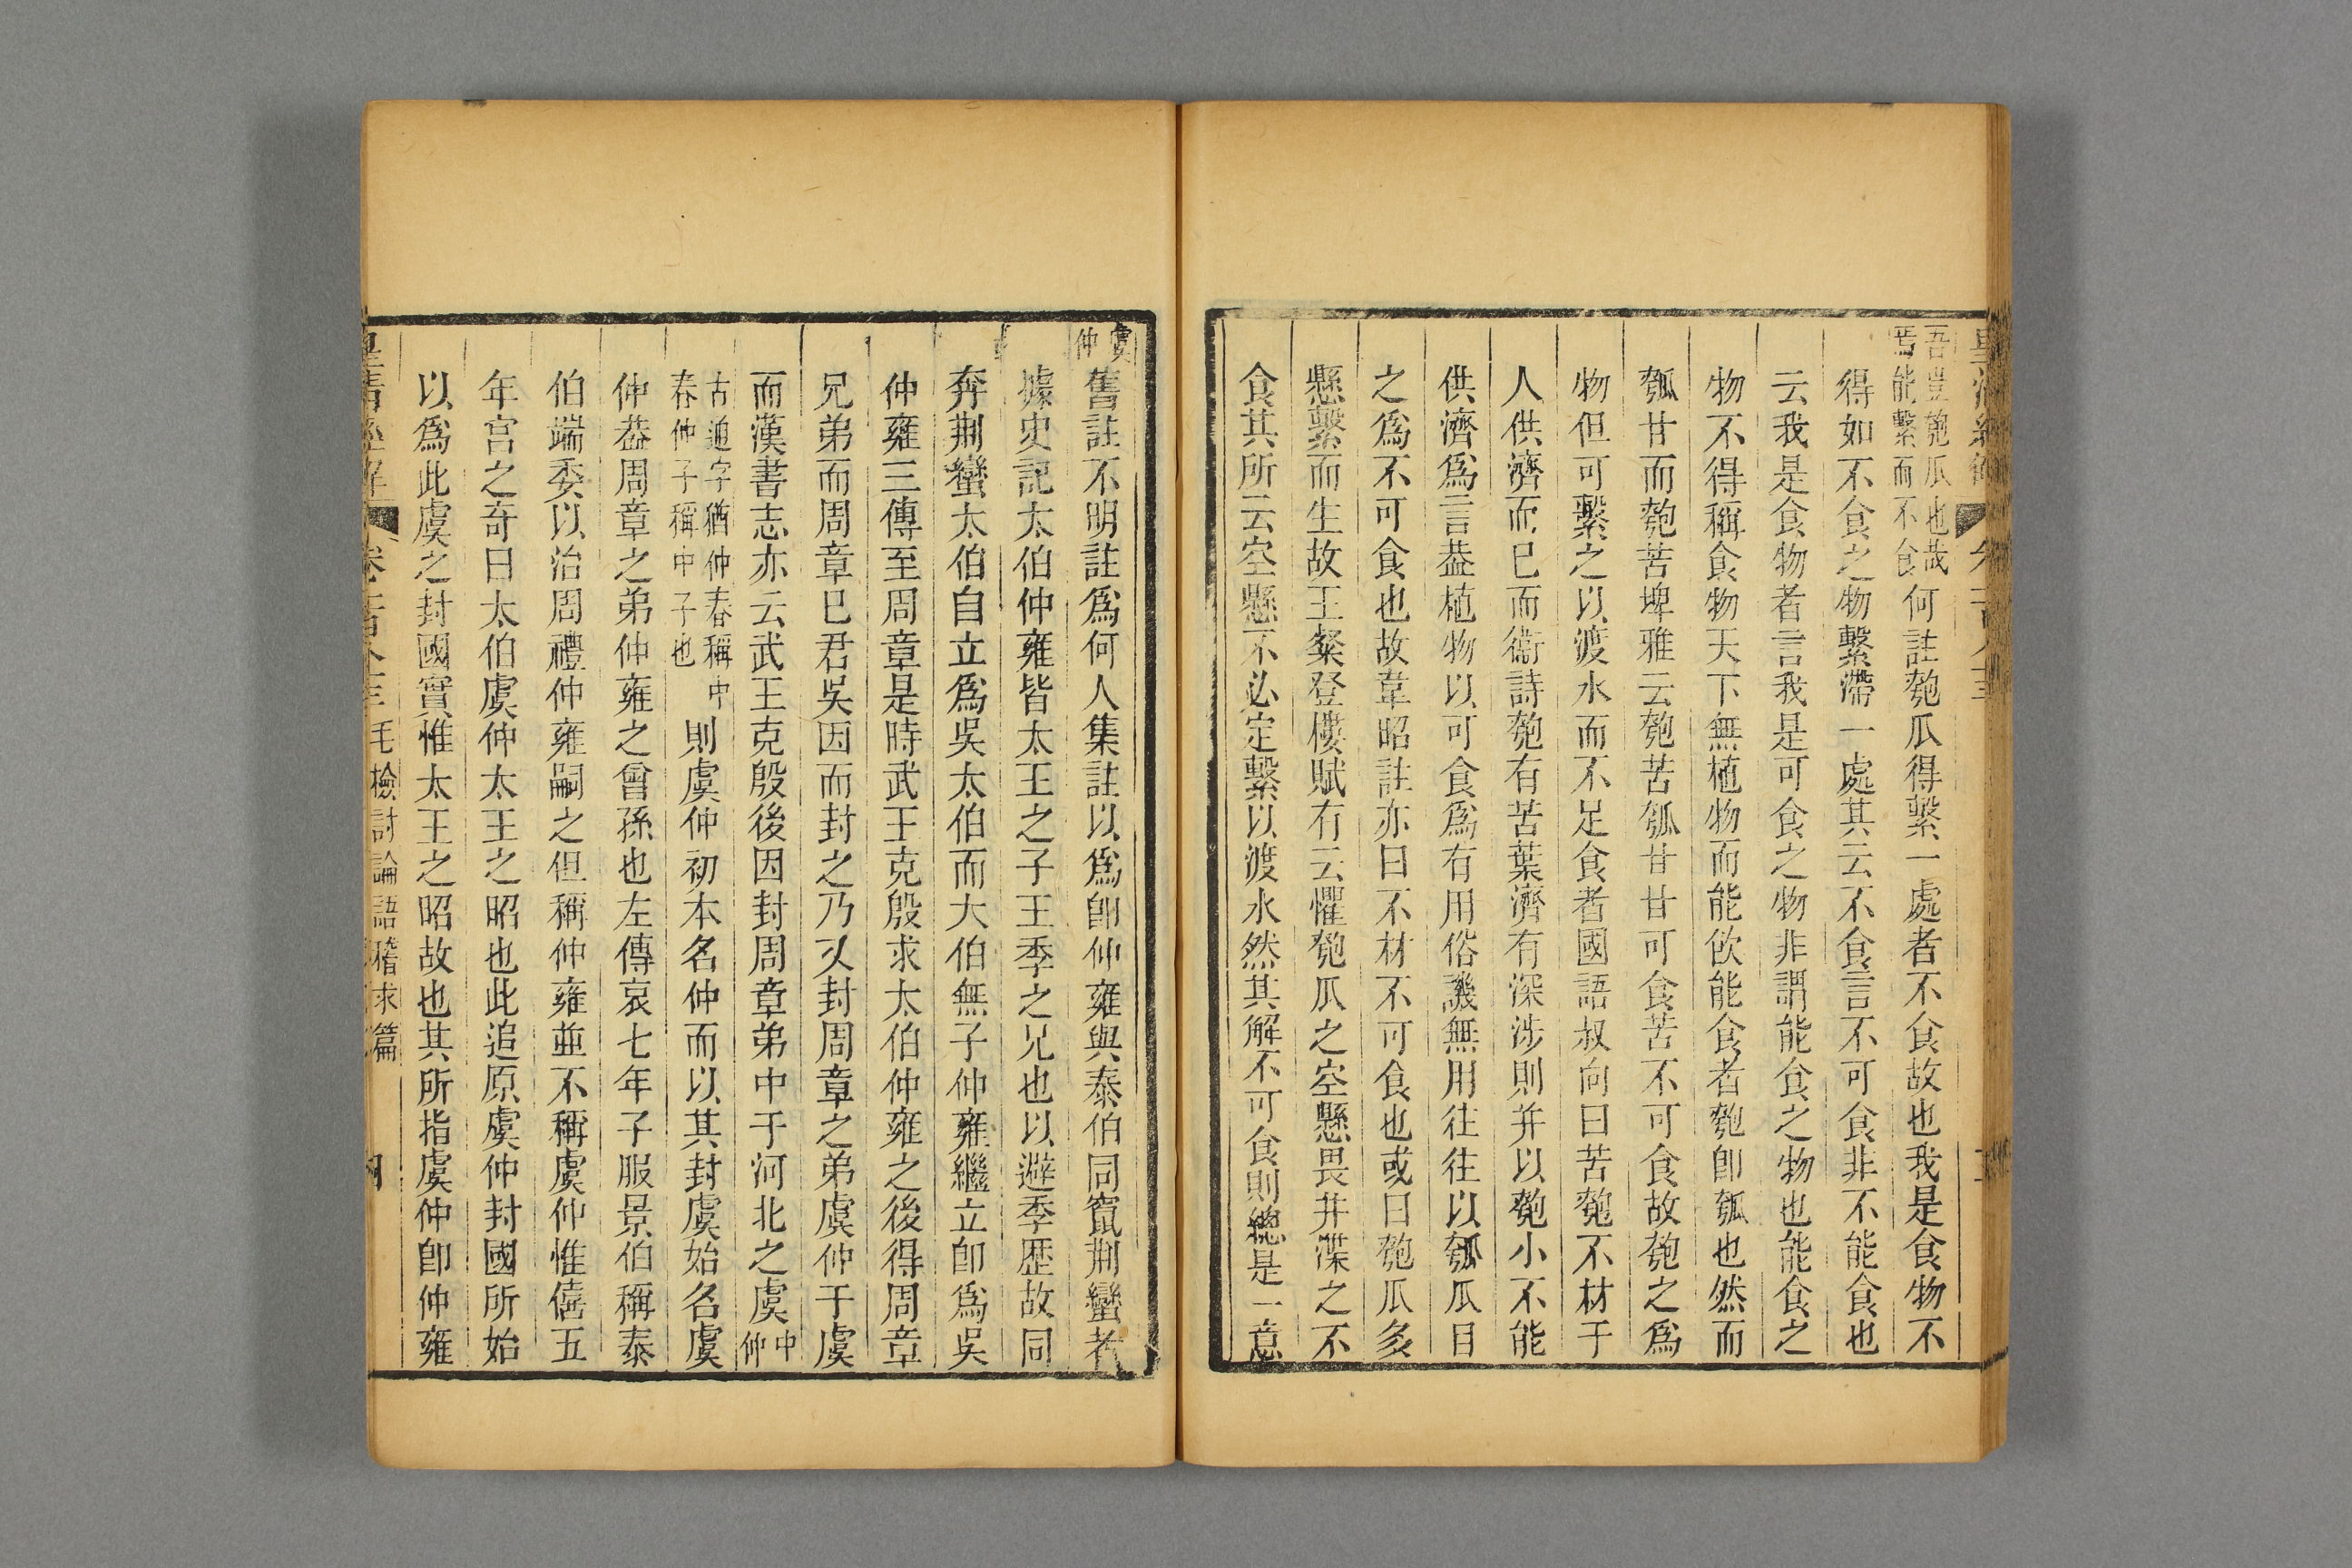 吾豈匏瓜也哉
焉能繫而不食
何註匏瓜得繫一處者不食故也我是食物不
得如不食之物繫滯一處其云不食言不可食非不能食也
云我是食物者言我是可食之物非謂能食之物也能食之
物不得稱食物天下無植物而能飮能食者匏卽瓠也然而
瓠甘而匏苦埤雅云匏苦瓠甘甘可食苦不可食故匏之爲
物但可繫之以渡水而不足食者國語叔向曰苦匏不材于
人供濟而已而衞詩匏有苦葉濟有深涉則并以匏小不能
供濟爲言葢植物以可食爲有用俗譏無用往往以瓠瓜目
之爲不可食也故韋昭註亦曰不材不可食也或曰匏瓜多
懸繫而生故王粲登樓賦有云懼匏瓜之空懸畏井渫之不
食其所云空懸不必定繫以渡水然其解不可食則總是一意
虞仲
舊註不明註爲何人集註以爲卽仲雍與泰伯同竄荆蠻者
據史記太伯仲雍皆太王之子王季之兄也以避季歷故同
奔荆蠻太伯自立爲吳太伯而大伯無子仲雍繼立卽爲吳
仲雍三傳至周章是時武王克殷求太伯仲雍之後得周章
兄弟而周章已君吳因而封之乃又封周章之弟虞仲于虞
而漢書志亦云武王克殷後因封周章弟中于河北之虞
中仲
古通字猶仲春稱中
春仲子稱中子也
則虞仲初本名仲而以其封虞始名虞
仲葢周章之弟仲雍之曾孫也左傳哀七年子服景伯稱泰
伯端委以治周禮仲雍嗣之但稱仲雍並不稱虞仲惟僖五
年宫之奇曰太伯虞仲太王之昭也此追原虞仲封國所始
以爲此虞之封國實惟太王之昭故也其所指虞仲卽仲雍
皇清經解
卷一百八十三
毛檢討論語稽求篇